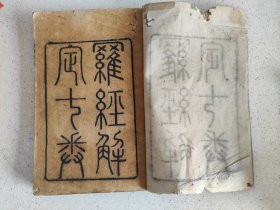 羅經解
定七卷